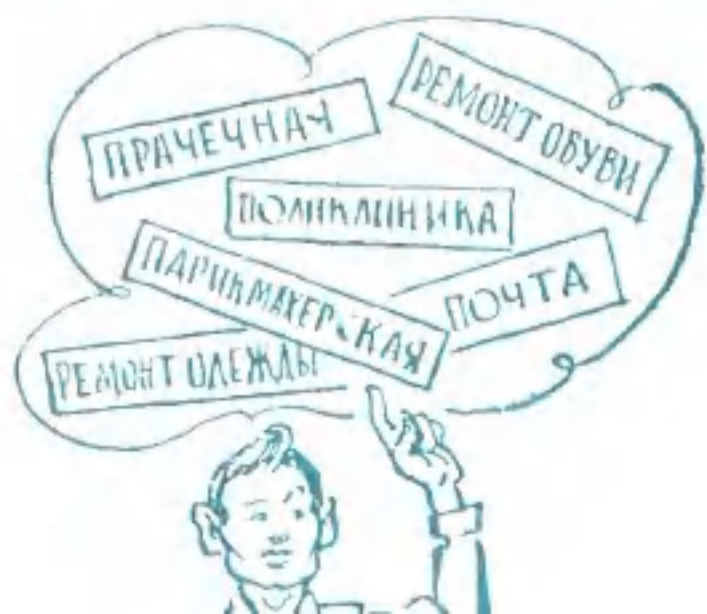 ПРАЧЕЧНАЯ
РЕМОНТ ОБУВИ
ПОЛИКЛИНИКА
ПАРИКМАХЕРСКАЯ
ПОЧТА
РЕМОНТ ОДЕЖДЫ